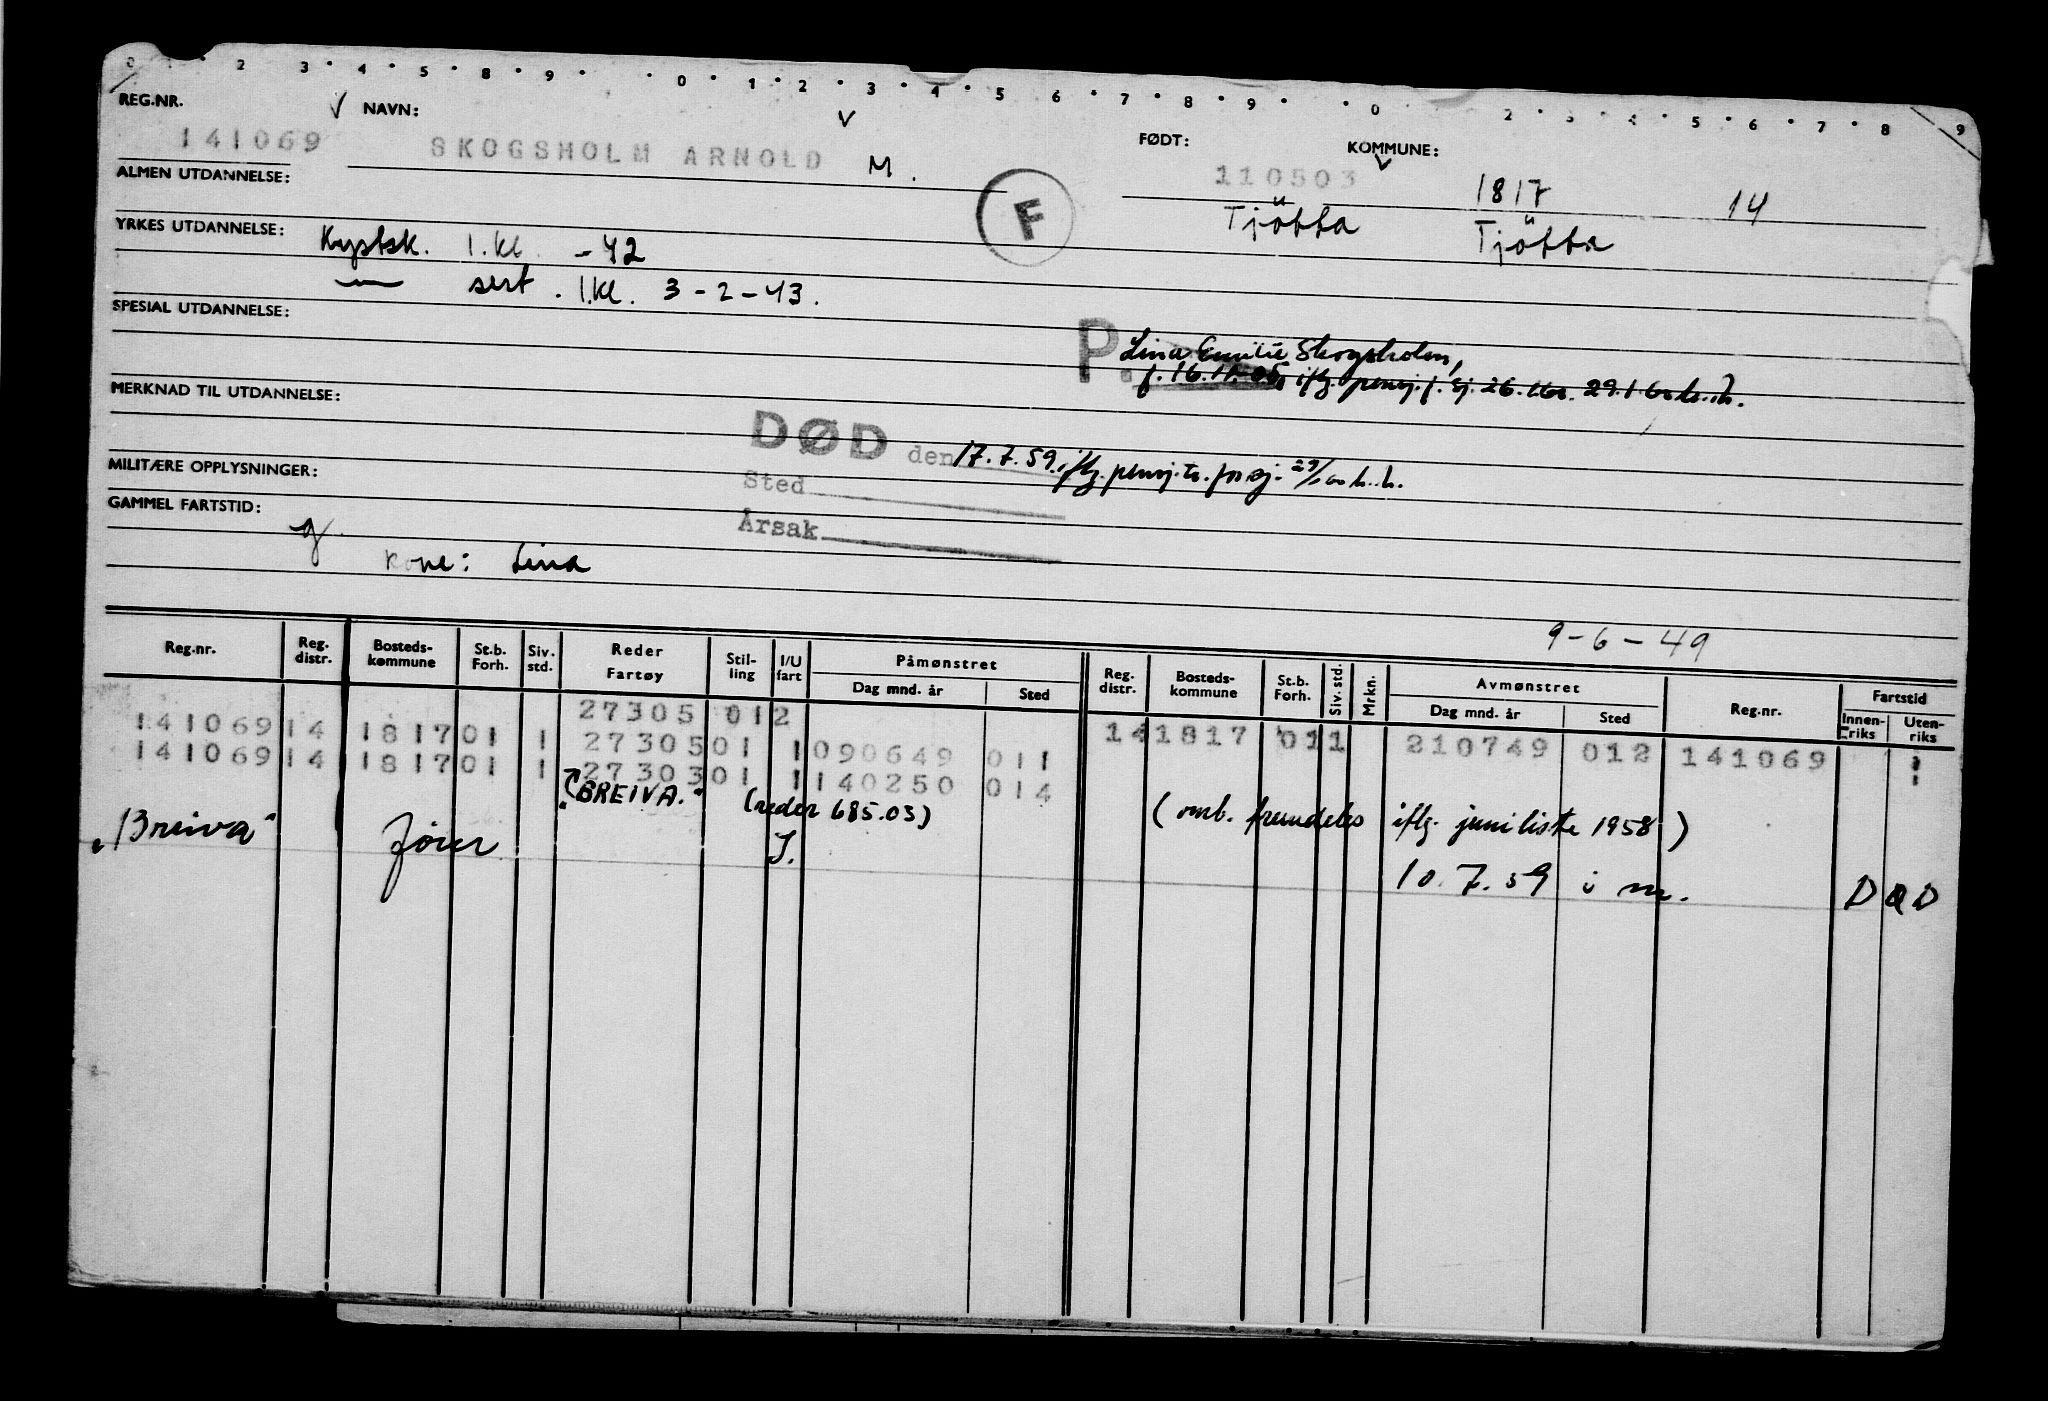 0 2 3 4 5 8 9 0 1 2 3 4 5 6 7 8 9 0 2 3 4 5 6 7 8 9
REG.NR. NAVN: FØDT: KOMMUNE:
141069 SKOGSHOLM ARNOLD M. 110503 1817 14
ALMEN UTDANNELSE: F Tjötta Tjötta
YRKES UTDANNELSE: Kystsk. 1.kl. -42
— sert. 1.kl. 3-2-43.
SPESIAL UTDANNELSE:
P. Lina Emilie Skogsholm,
f. 16.11.05 iflg. pensj. f. sj. 26.
MERKNAD TIL UTDANNELSE:
DØD den 17.7.59. iflg. pensj.tr. for sj.
MILITÆRE OPPLYSNINGER: Sted
GAMMEL FARTSTID: Årsak
Kone: Lina
9-6-49
Reg.nr. Reg. distr. Bosteds-kommune St.b. Forh. Siv. std. Reder Fartøy Stil-ling I/U fart Påmønstret Dag mnd. år Sted Reg. distr. Bosteds-kommune St.b. Forh. Siv. std. Mrkn. Avmønstret Dag mnd. år Sted Reg.nr. Fartstid Innen-riks Uten-riks
27305 012
141069 14 1817 01 1 27305 01 1 090649 011 14 1817 01 1 210749 012 141069
141069 14 1817 01 1 27303 01 1 140250 014
"BREIVA." (reder 685.03) (omb. fremdeles iflg. juniliste 1958)
"Breiva" fører I. 10.7.59 i m. DØD